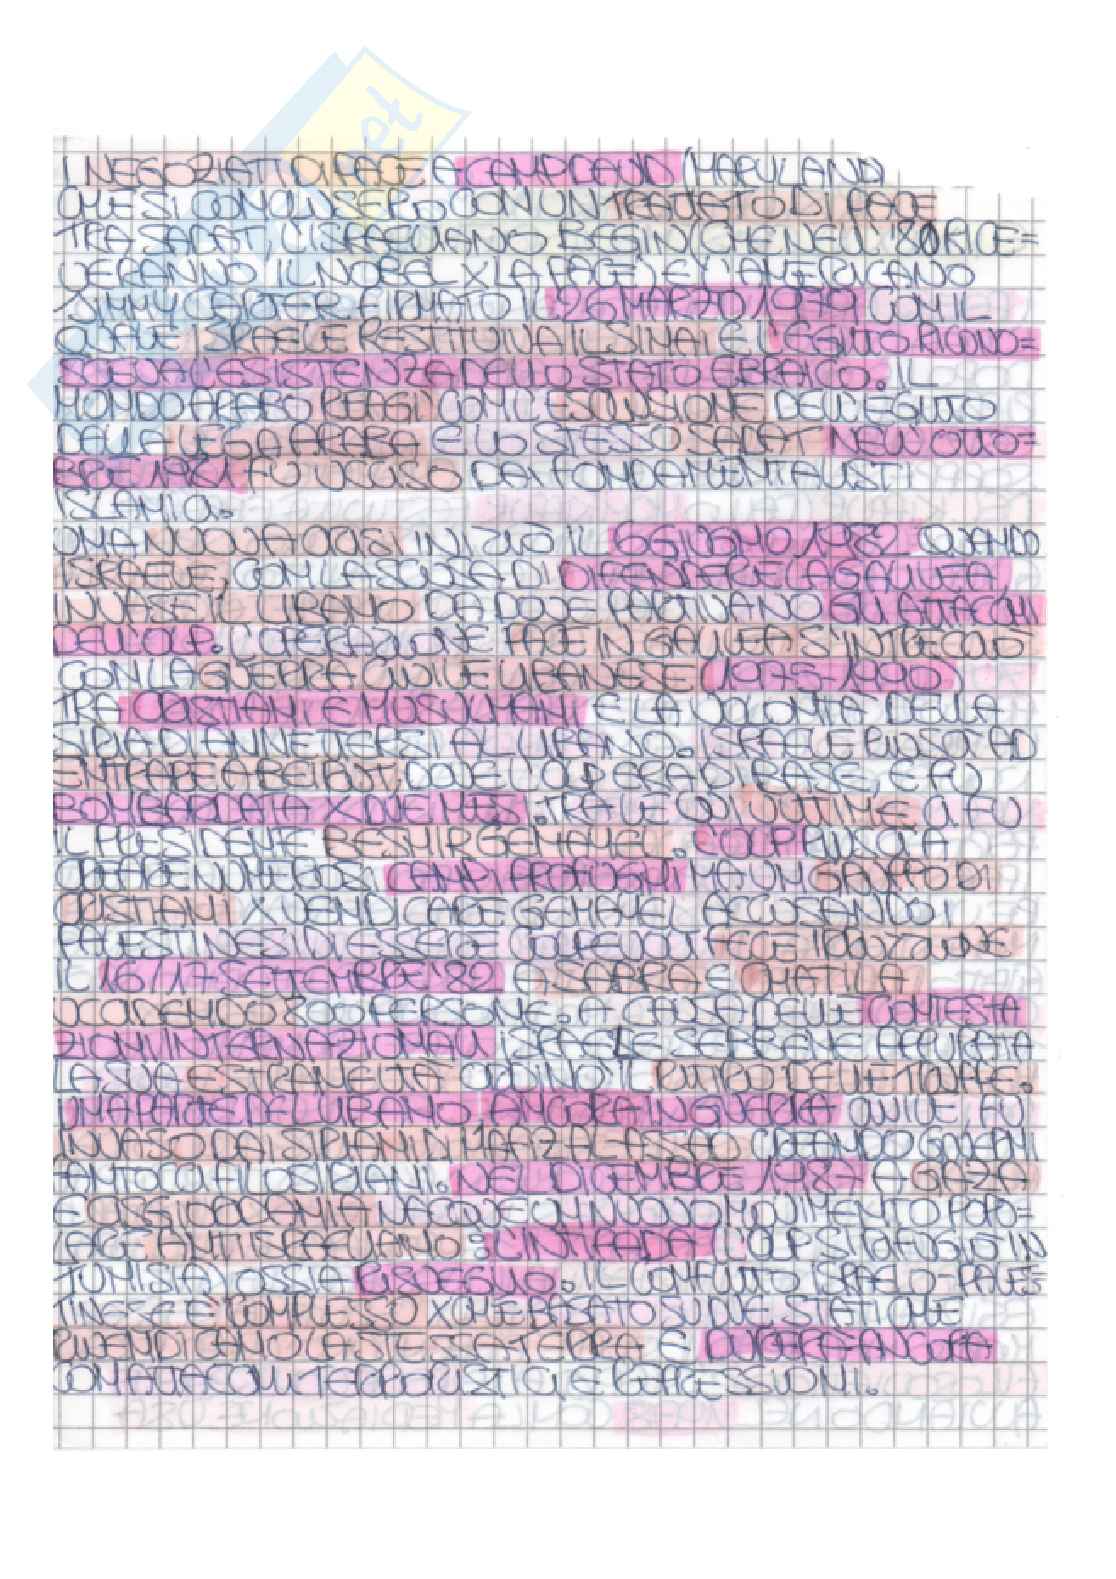 I NEGOZIATI DI PACE A CAMP DAVID (MARYLAND)
CHE SI CONCLUSERO CON UN TRATTATO DI PACE
TRA SADAT, L'ISRAELIANO BEGIN (CHE NELL' 80 RICE=
VERANNO IL NOBEL X LA PACE) E L'AMERICANO
JIMMY CARTER FIRMATO IL 26 MARZO 1979 CON IL
QUALE ISRAELE RESTITUIVA IL SINAI E L'EGITTO RICONO=
SCEVA L'ESISTENZA DELLO STATO EBRAICO. IL
MONDO ARABO REAGÌ CON L'ESCLUSIONE DELL'EGITTO
DALLA LEGA ARABA E LO STESSO SADAT NELL'OTTO=
BRE 1981 FU UCCISO DAI FONDAMENTALISTI
ISLAMICI.
UNA NUOVA CRISI INIZIÒ IL 6 GIUGNO 1982 QUANDO
ISRAELE, CON LA SCUSA DI DIFENDERE LA GALILEA
INVASE IL LIBANO DA DOVE PARTIVANO GLI ATTACCHI
DELL'OLP. L'OPERAZIONE PACE IN GALILEA S'INTRECCIÒ
CON LA GUERRA CIVILE LIBANESE (1975-1990)
TRA CRISTIANI E MUSULMANI E LA VOLONTÀ DELLA
SIRIA DI ANNETTERSI AL LIBANO. ISRAELE RIUSCÌ AD
ENTRARE A BEIRUT, DOVE L'OLP ERA DI BASE, E FU
BOMBARDATA X DUE MESI. TRA LE CUI VITTIME CI FU
IL PRESIDENTE BESHIR GEMAYEL. COLPÌ
NUMEROSI CAMPI PROFUGHI MA UN GRUPPO DI
CRISTIANI X VENDICARE GEMAYEL ACCUSANDO I
PALESTINESI DI ESSERE COLPEVOLI FECE IRRUZIONE
IL 16/17 SETTEMBRE '82 A SABRA E CHATILA
UCCIDENDO 200 PERSONE. A CAUSA DELLE CONTESTA
ZIONI INTERNAZIONALI ISRAELE SEBBENE APPURATA
LA SUA ESTRANEITÀ ORDINÒ IL RITIRO DELLE TRUPPE.
UNA PARTE DEL LIBANO ANCORA IN GUERRA CIVILE, FU
INVASO DAI SIRIANI DI HAFZ AL ASSAD CREANDO GOVERNI
FANTOCCI FILOSIRIANI. NEL DICEMBRE 1987 A GAZA
E CISGIORDANIA NACQUE UN NUOVO MOVIMENTO POPO=
LARE ANTISRAELIANO: L'INTIFADA (L'OLP SI RIFUGIÒ IN
TUNISIA) OSSIA RISVEGLIO. IL CONFLITTO ISRAELO-PALES=
TINESE È COMPLESSO X CHE BASATO SU DUE STATI CHE
RIVENDICANO LA STESSA TERRA E DURERÀ ANCORA
CON ATTACCHI TERRORISTICI E REPRESSIONI.